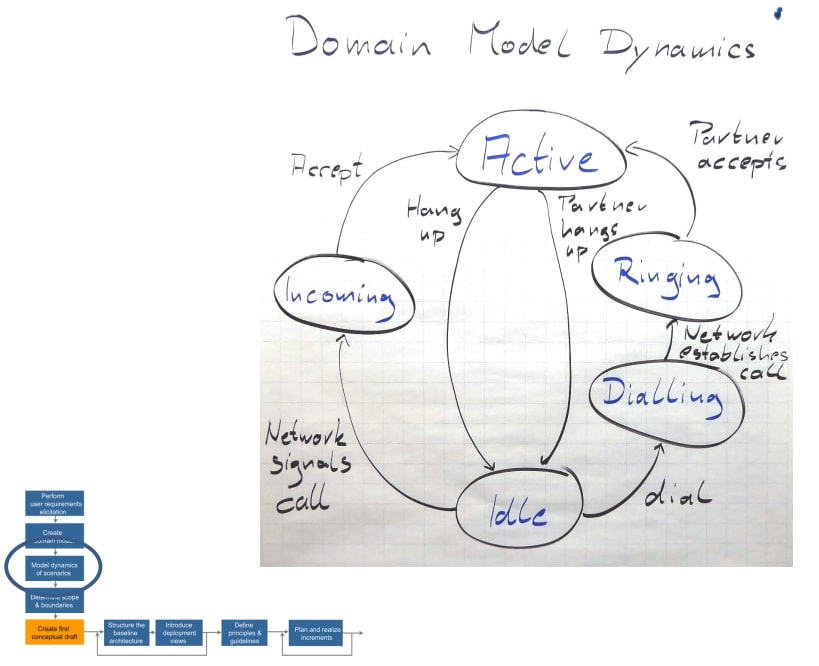 Domain Model Dynamics
Active
Partner
accepts
Accept
Hang
up
Partner
hangs
up
Ringing
Incoming
Network
establishes
call
Dialling
Network
signals
call
Idle
dial
Perform
user requirements
elicitation
Create
domain model
Model dynamics
of scenarios
Determine scope
& boundaries
Create first
conceptual draft
Structure the
baseline
architecture
Introduce
deployment
views
Define
principles &
guidelines
Plan and realize
increments